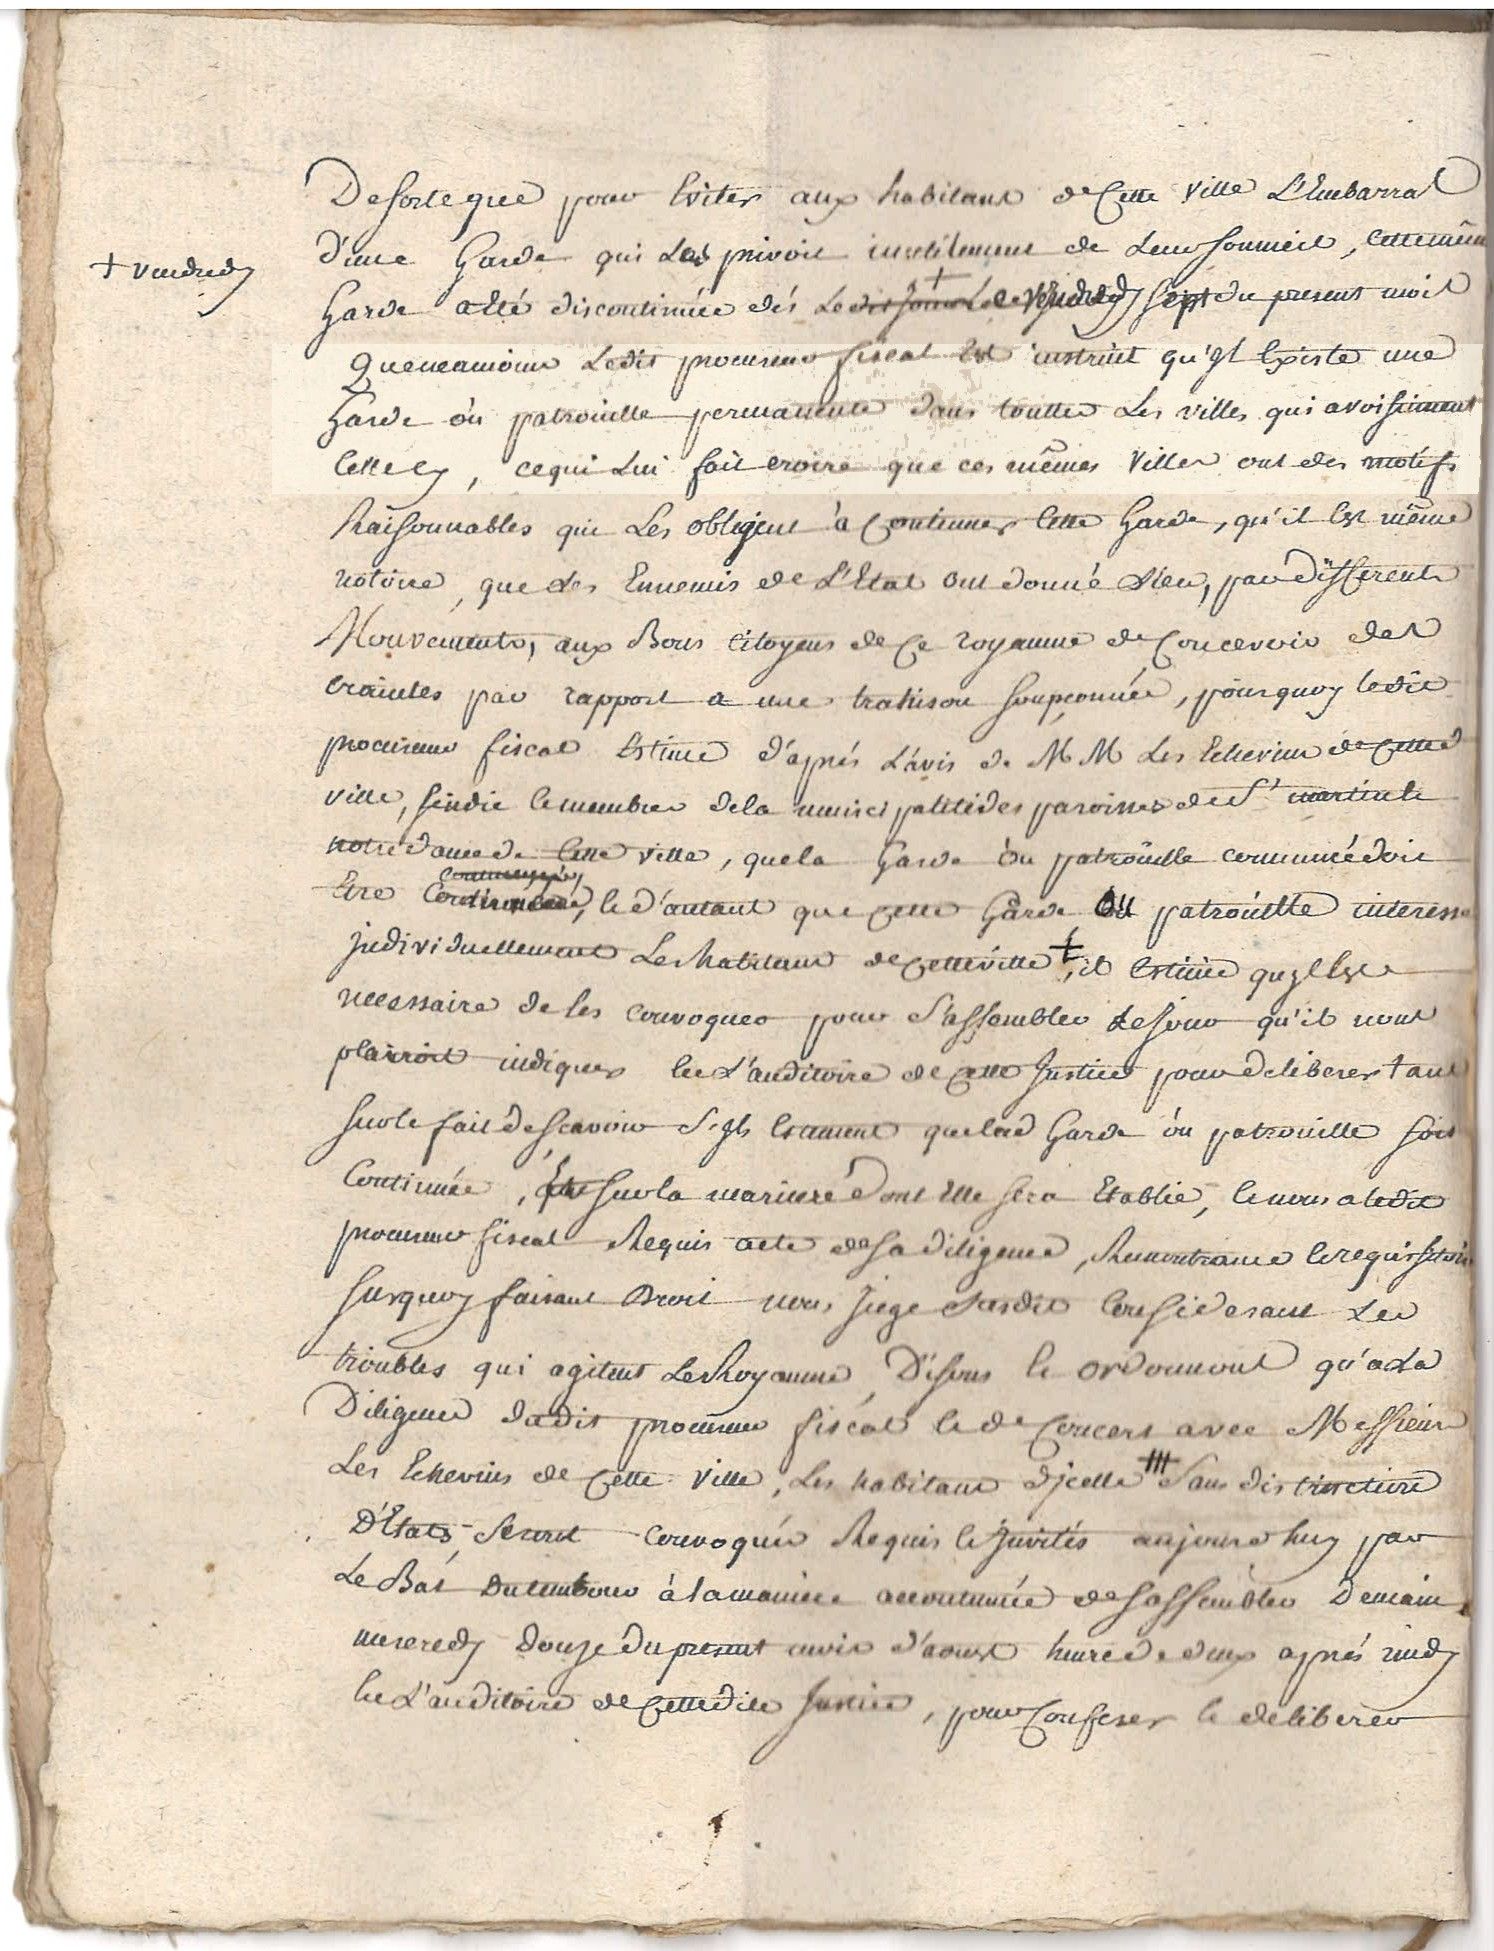 De sorte que pour Eviter aux habitans de Cette ville L'Embarras
+ vendredy
d'une Garde qui Les privoit inutilement de Leur sommeil, cette même
Garde a Eté discontinuée dés Le + vendredy sept du present mois
Queneamoins Ledit procureur fiscal Est instruit qu'jl Existe une
Garde óu patrouille permanente dans touttes Les villes qui avoisinent
Celle cy, cequi Lui fait croire que ces mêmes Villes ont des motifs
Raisonnables qui Les obligent à Continuer Cette Garde, qu'il Est même
notoire, que Les Ennemis de L'Etat ont donné Lieu, par differents
Mouvements, aux Bons Citoyens de Ce royaume de Concevoir des
craintes par rapport a une trahison soupconnée, pourquoy ledit
procureur fiscal Estime d'aprés L'avis de M M Les Echevins de Cette
ville, sindic et membres dela municipalité des paroisses de St martin et
notre dame de Cette ville, que la Garde óu patroüille commencée doit
Etre Continuée, et d'autant que cette Garde óu patroüille interesse
jndividuellement Les habitans de Cette ville +, il Estime qu'jl Est
necessaire de les convoquer pour s'assembler Le jour qu'il nous
plairoit indiquer En L'auditoire de Cette Justice pour deliberer tant
sur le fait de scavoir s'jls Estiment que lad Garde óu patrouille soit
Continuée, Et sur la maniere dont Elle sera Etablie, et nous a ledit
procureur fiscal Requis acte de sa diligence, Remontrance et requisitoire
surquoy faisant Droit nous Juge susdit Considerant Les
troubles qui agitent Le Royaume, Disons et ordonnons qu'a La
Diligence dudit procureur fiscal et de Concert avec Messieurs
Les Echevins de Cette ville, Les habitans d'jcelle sans distinction
D'Etats seront convoqués Requis et Jnvités aujourd'huy par
Le Bat du tambour à la maniere accoutumée de s'assembler Demain
mercredy douze du present mois d'aoust heure de deux aprés midy
En L'auditoire de Cette dite Justice, pour Conferer et deliberer